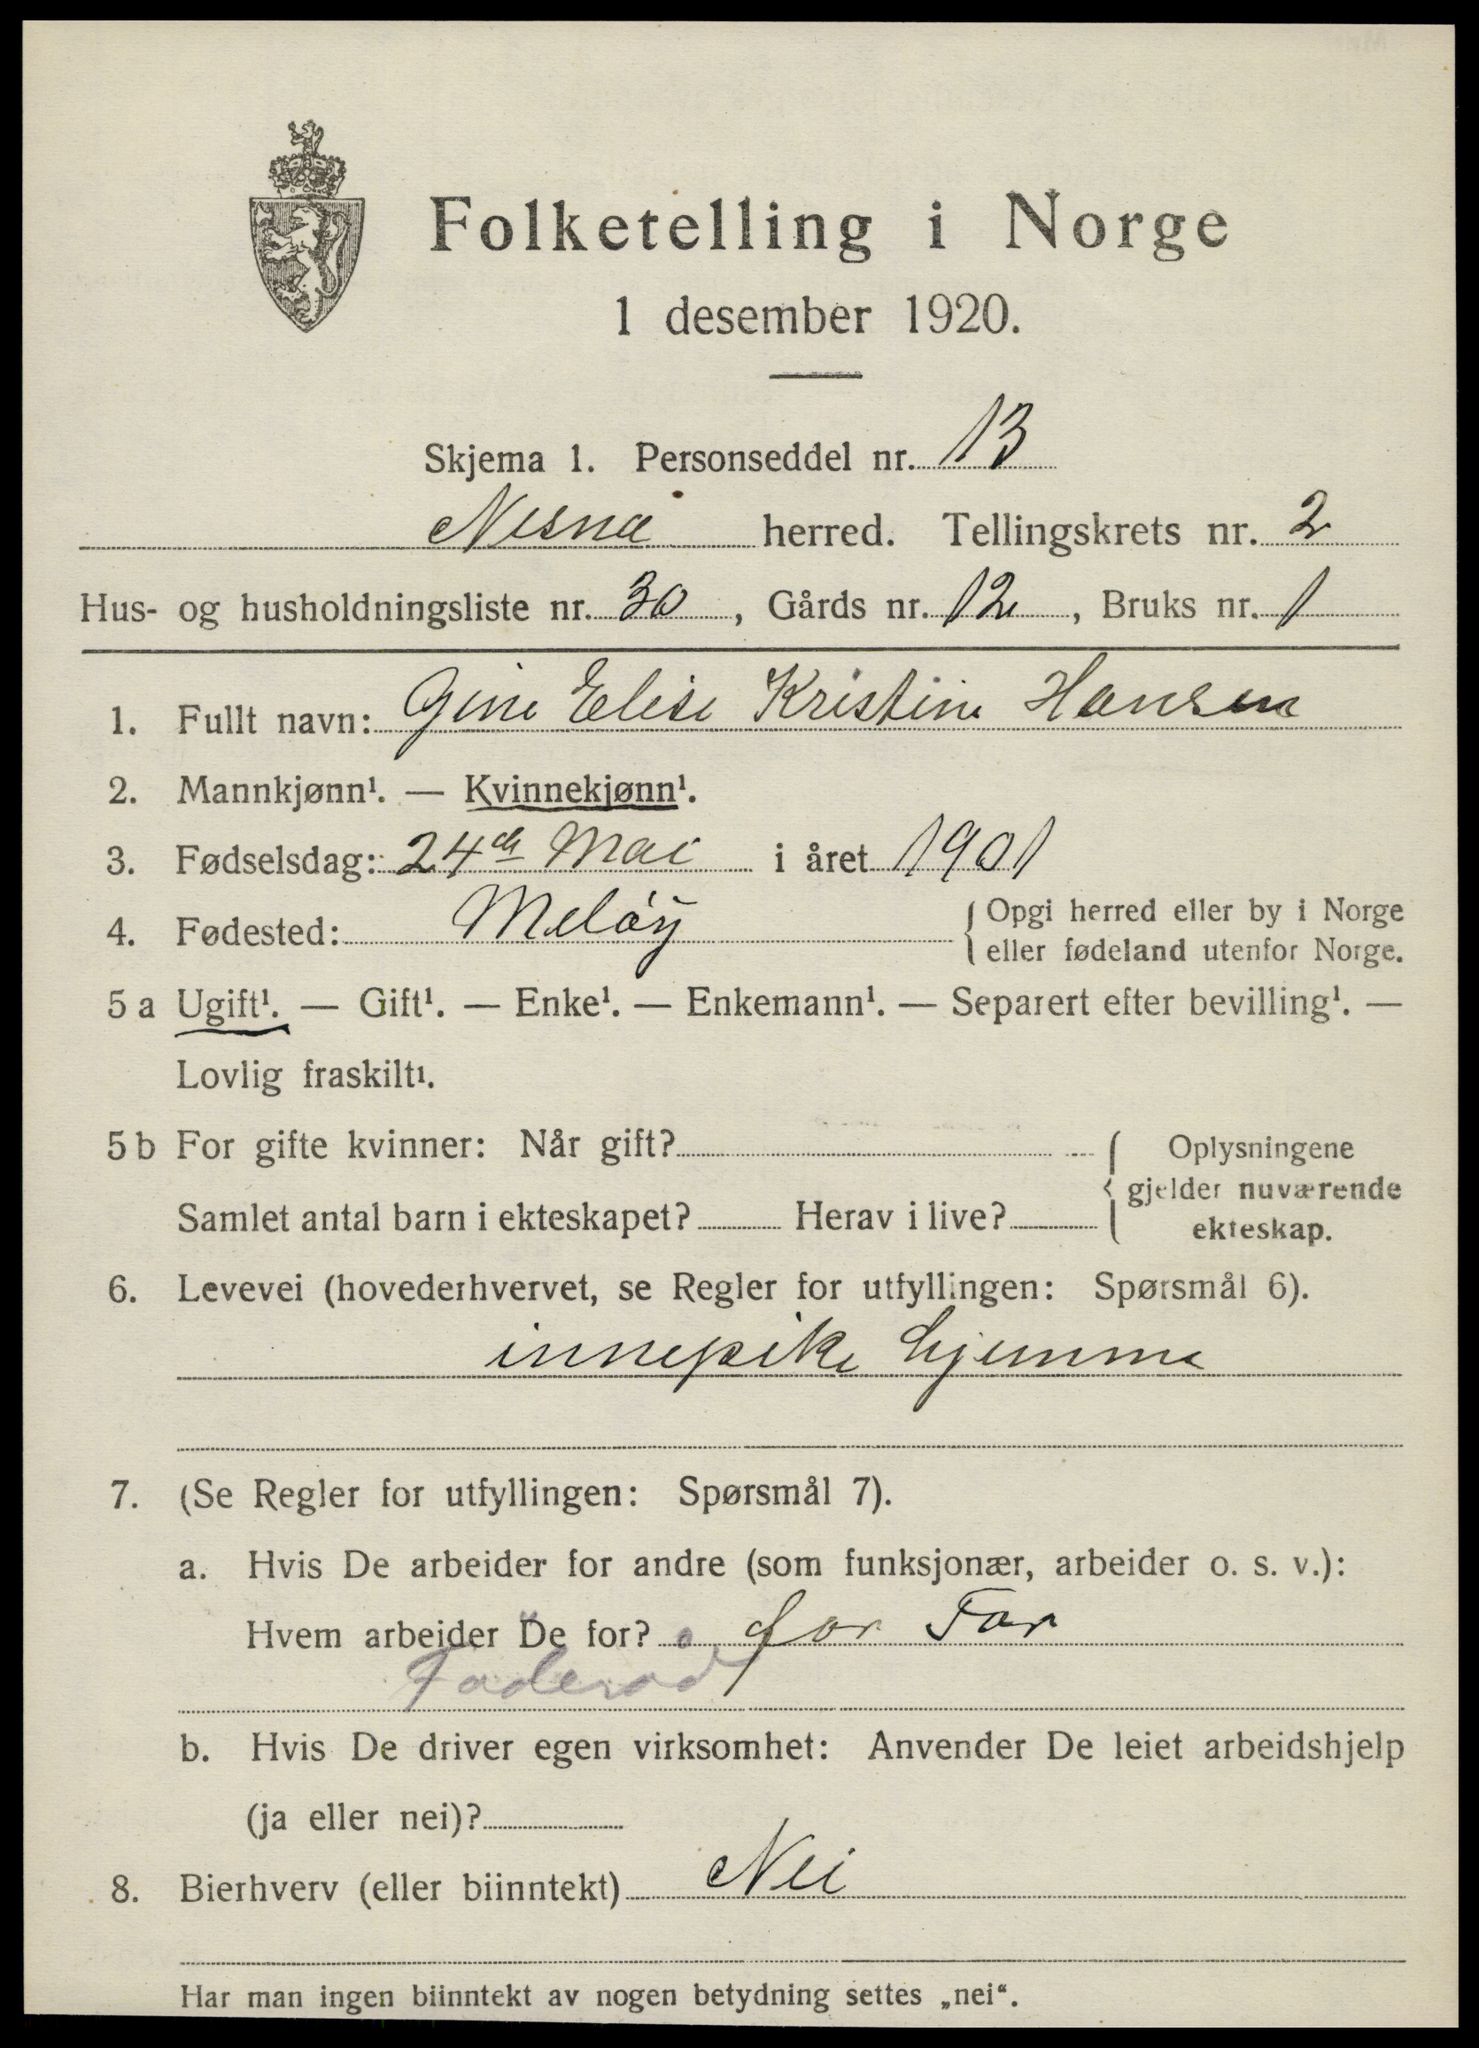 Folketelling i Norge
1 desember 1920.
Skjema 1. Personseddel nr. 13
Nesna herred. Tellingskrets nr. 2
Hus- og husholdningsliste nr. 30, Gårds nr. 12, Bruks nr. 1
1. Fullt navn: Gine Elise Kristine Hansen
2. Mannkjønn¹. — Kvinnekjønn¹.
3. Fødselsdag: 24de Mai i året 1901
4. Fødested: Meløy { Opgi herred eller by i Norge
eller fødeland utenfor Norge.
5 a Ugift¹. — Gift¹. — Enke¹. — Enkemann¹. — Separert efter bevilling¹. —
Lovlig fraskilt¹.
5 b For gifte kvinner: Når gift? { Oplysningene
gjelder nuværende
Samlet antal barn i ekteskapet? Herav i live? ekteskap.
6. Levevei (hovederhvervet, se Regler for utfyllingen: Spørsmål 6).
innepike hjemme
7. (Se Regler for utfyllingen: Spørsmål 7).
a. Hvis De arbeider for andre (som funksjonær, arbeider o. s. v.):
Hvem arbeider De for? for Far
b. Hvis De driver egen virksomhet: Anvender De leiet arbeidshjelp
(ja eller nei)?
8. Bierhverv (eller biinntekt) Nei
Har man ingen biinntekt av nogen betydning settes „nei“.